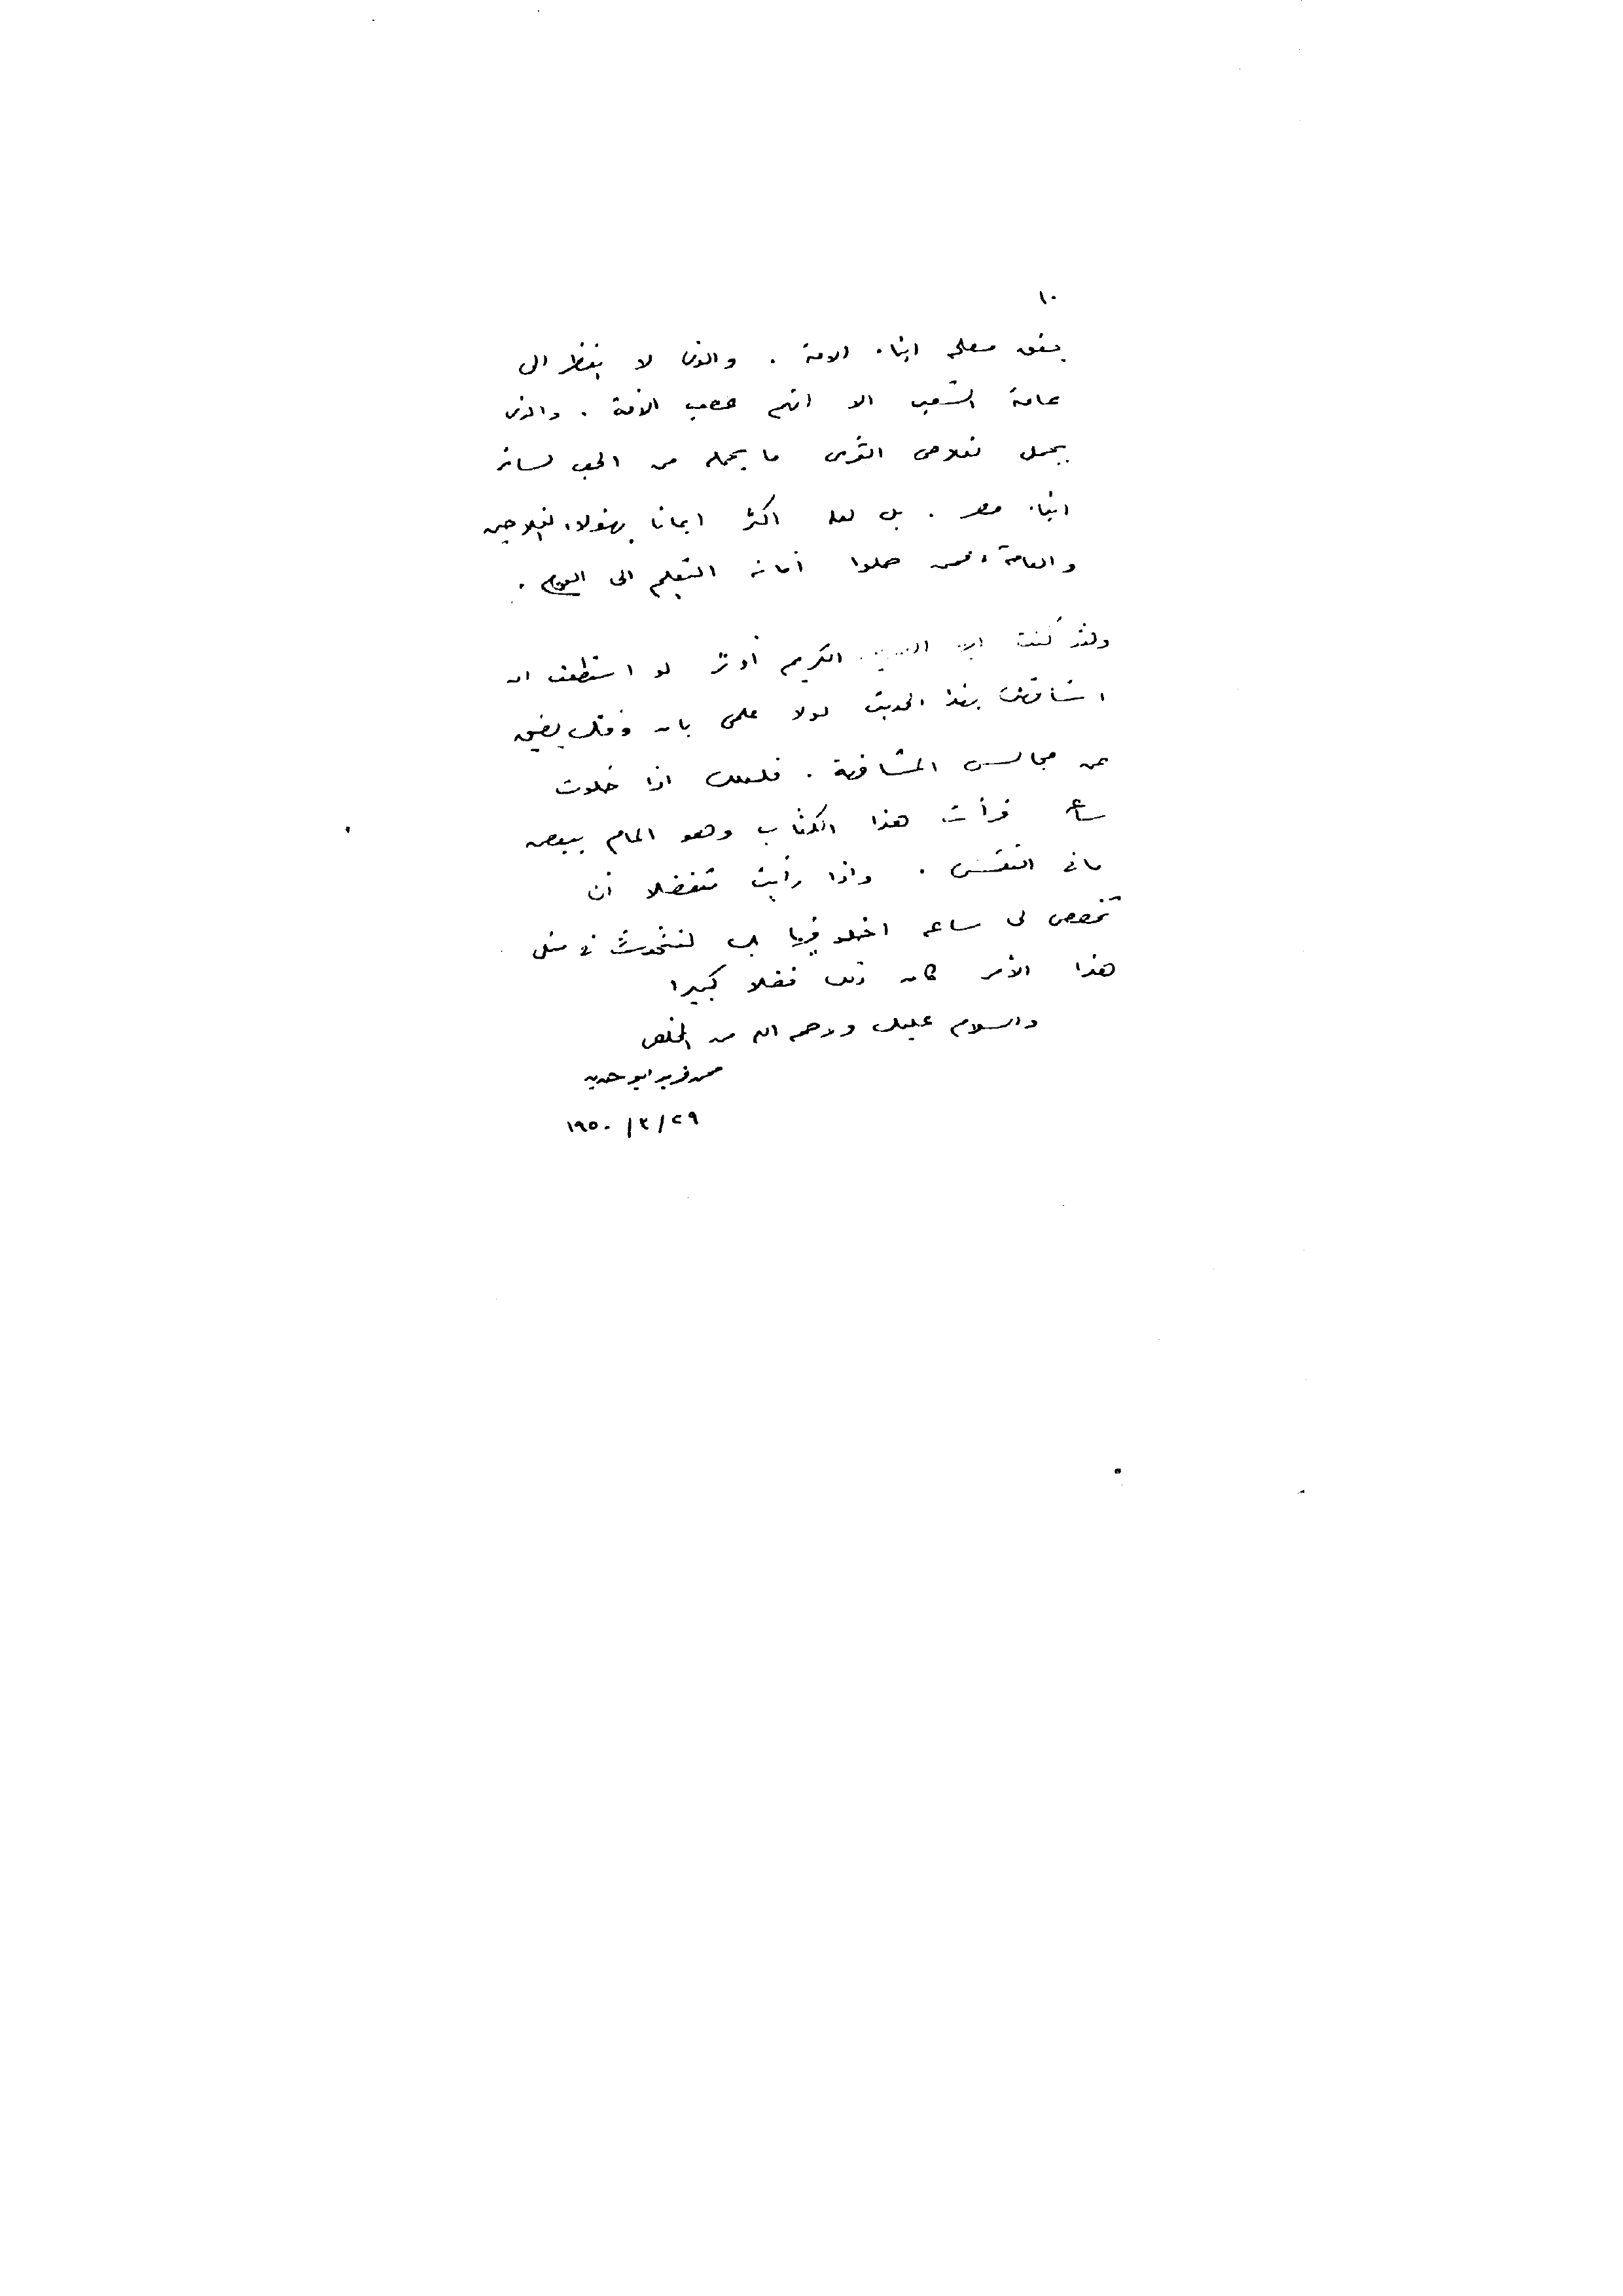 ١٠
يحقق مصلحة ابناء الامة . والذى لا ينظر الى
عامة الشعب الا انهم عصب الأمة . والذى
يحمل لفلاحى القرى ما يحمله من الحب لسائر
ابناء مصر . بل لعله اكثر ايمانا بهؤلاء الفلاحين
والعامة ممن حملوا أمانة التعليم الى اليوم .
ولقد كنت ايها السيد الكريم أوثر لو استطعت ان
اشافهك بهذا الحديث لولا علمى بان وقتك يضيق
عن مجالس المشافهة . فلعلك اذا خلوت
ساعة قرأت هذا الكتاب وهو المام ببعض
ما فى النفس . واذا رأيت متفضلا أن
تخصص لى ساعة اخلو فيها بك لنتحدث فى مثل
هذا الأمر كان ذلك فضلا كبيرا
والسلام عليك ورحمة الله من المخلص
محمد فريد ابو حديد
٢٩/٣/١٩٥٠